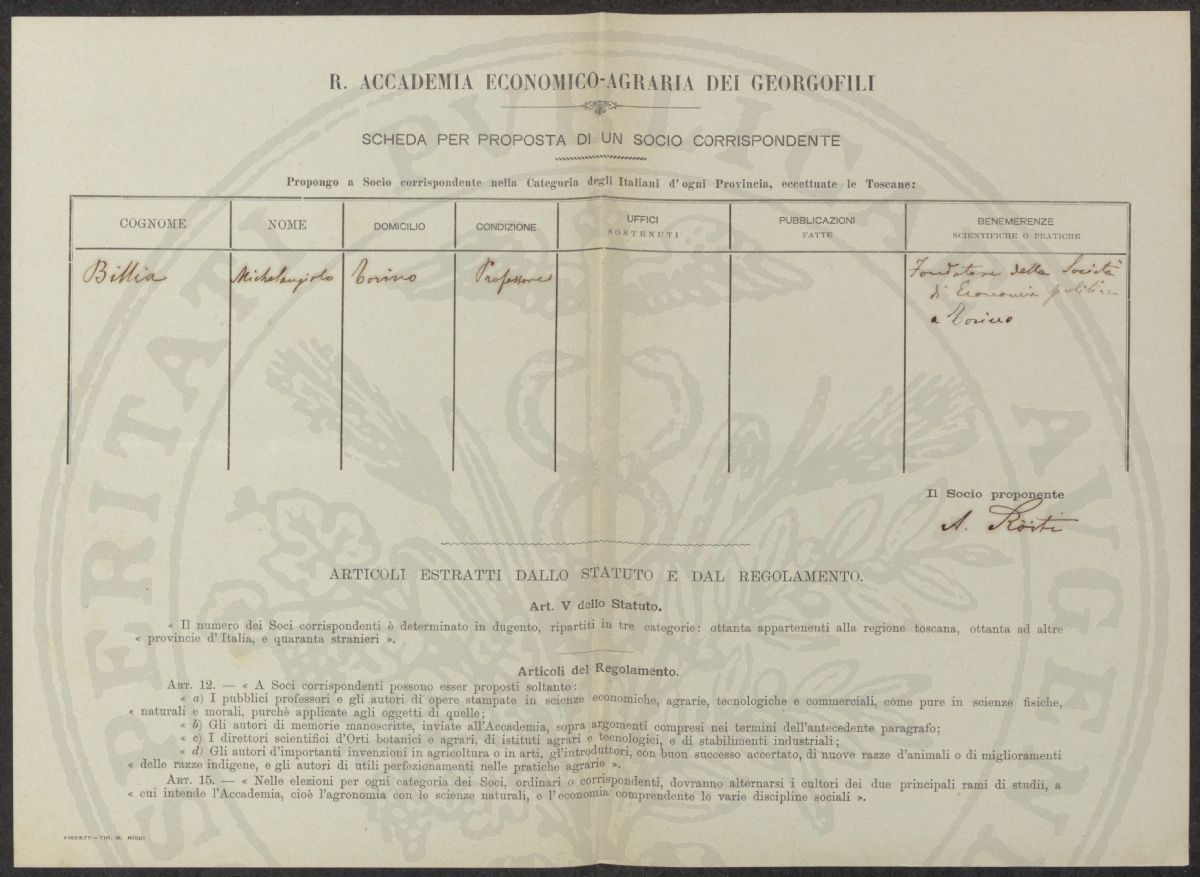 R. ACCADEMIA ECONOMICO-AGRARIA DEI GEORGOFILI
SCHEDA PER PROPOSTA DI UN SOCIO CORRISPONDENTE
Propongo a Socio corrispondente nella Categoria degli Italiani d'ogni Provincia, eccettuate le Toscane:
COGNOME
NOME
DOMICILIO
CONDIZIONE
UFFICI
SOSTENUTI
PUBBLICAZIONI
FATTE
BENEMERENZE
SCIENTIFICHE O PRATICHE
Billia
Michelangiolo
Torino
Professore
Fondatore della Società
di Economia politica
a Torino
Il Socio proponente
A. Ròiti
ARTICOLI ESTRATTI DALLO STATUTO E DAL REGOLAMENTO.
Art. V dello Statuto.
« Il numero dei Soci corrispondenti è determinato in dugento, ripartiti in tre categorie: ottanta appartenenti alla regione toscana, ottanta ad altre
« provincie d'Italia, e quaranta stranieri ».
Articoli del Regolamento.
ART. 12. — « A Soci corrispondenti possono esser proposti soltanto:
« a) I pubblici professori e gli autori di opere stampate in scienze economiche, agrarie, tecnologiche e commerciali, come pure in scienze fisiche,
« naturali e morali, purchè applicate agli oggetti di quelle;
« b) Gli autori di memorie manoscritte, inviate all'Accademia, sopra argomenti compresi nei termini dell'antecedente paragrafo;
« c) I direttori scientifici d'Orti botanici e agrari, di istituti agrari e tecnologici, e di stabilimenti industriali;
« d) Gli autori d'importanti invenzioni in agricoltura o in arti, gl'introduttori, con buon successo accertato, di nuove razze d'animali o di miglioramenti
« delle razze indigene, e gli autori di utili perfezionamenti nelle pratiche agrarie ».
ART. 15. — « Nelle elezioni per ogni categoria dei Soci, ordinari o corrispondenti, dovranno alternarsi i cultori dei due principali rami di studii, a
« cui intende l'Accademia, cioè l'agronomia con le scienze naturali, e l'economia comprendente le varie discipline sociali ».
FIRENZE — TIP. M. RICCI
PROSPERITATI PUBLICAE AVGENDAE